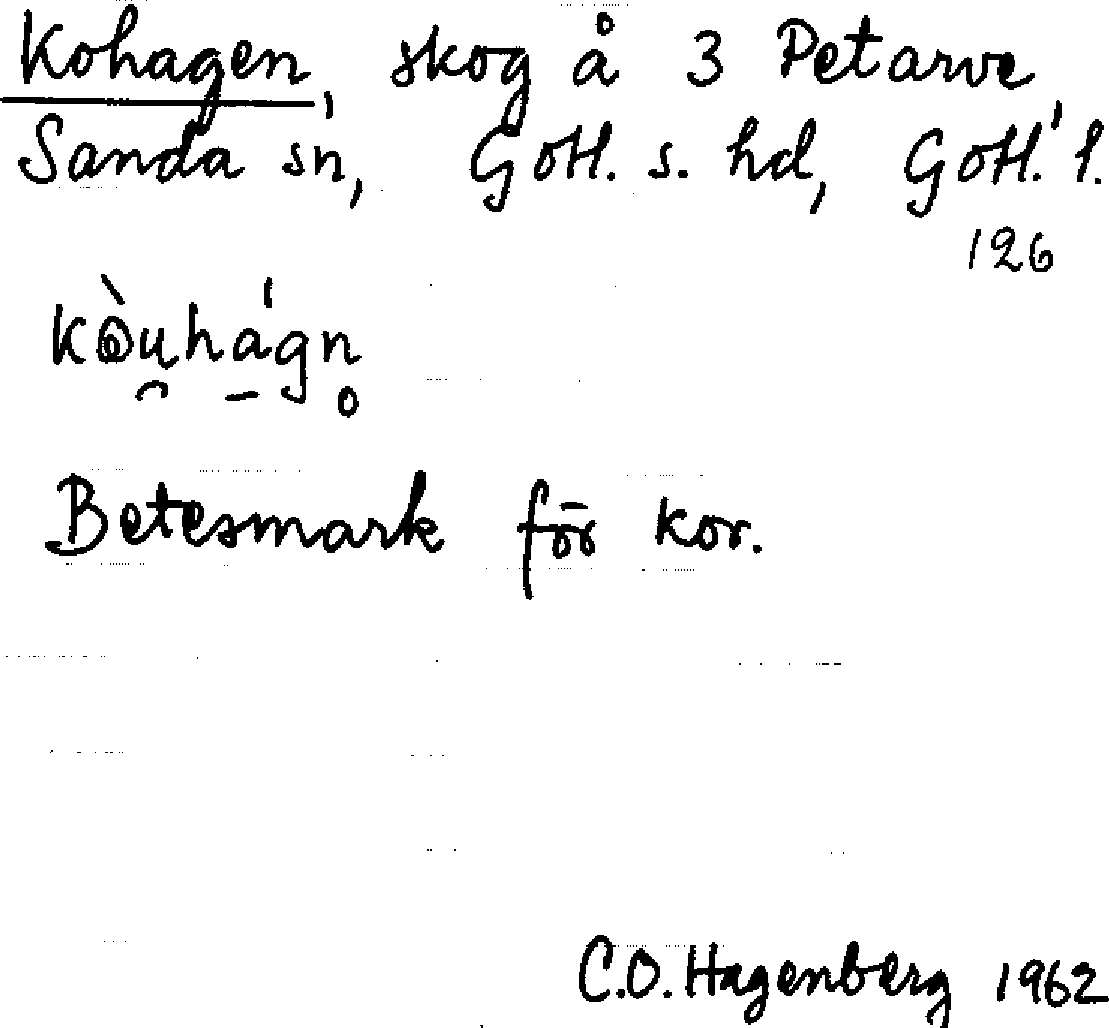 Kohagen, skog å 3 Petarve,
Sanda sn, Gotl. s. hd, Gotl. l.
126
Betesmark för kor.
C.O. Hagenberg 1962